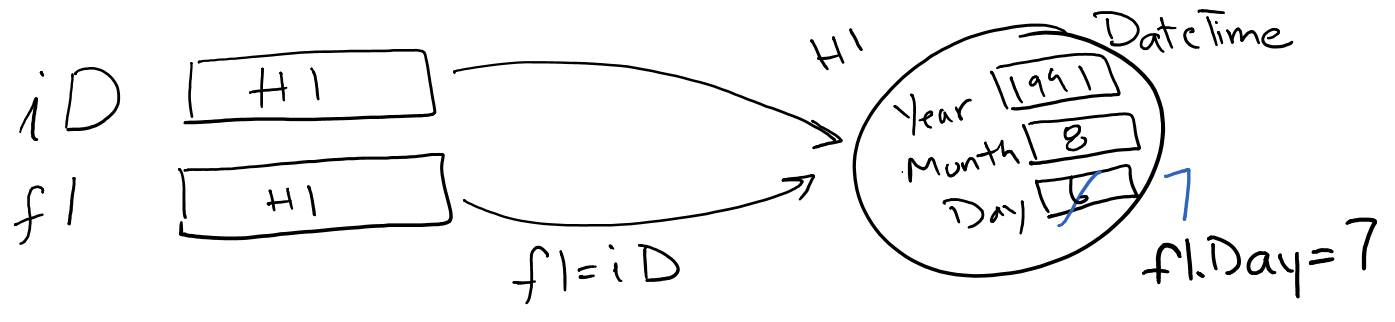 iD H1
f1 H1
f1=iD
H1
DateTime
Year 1991
Month 8
Day 6 7
f1.Day=7